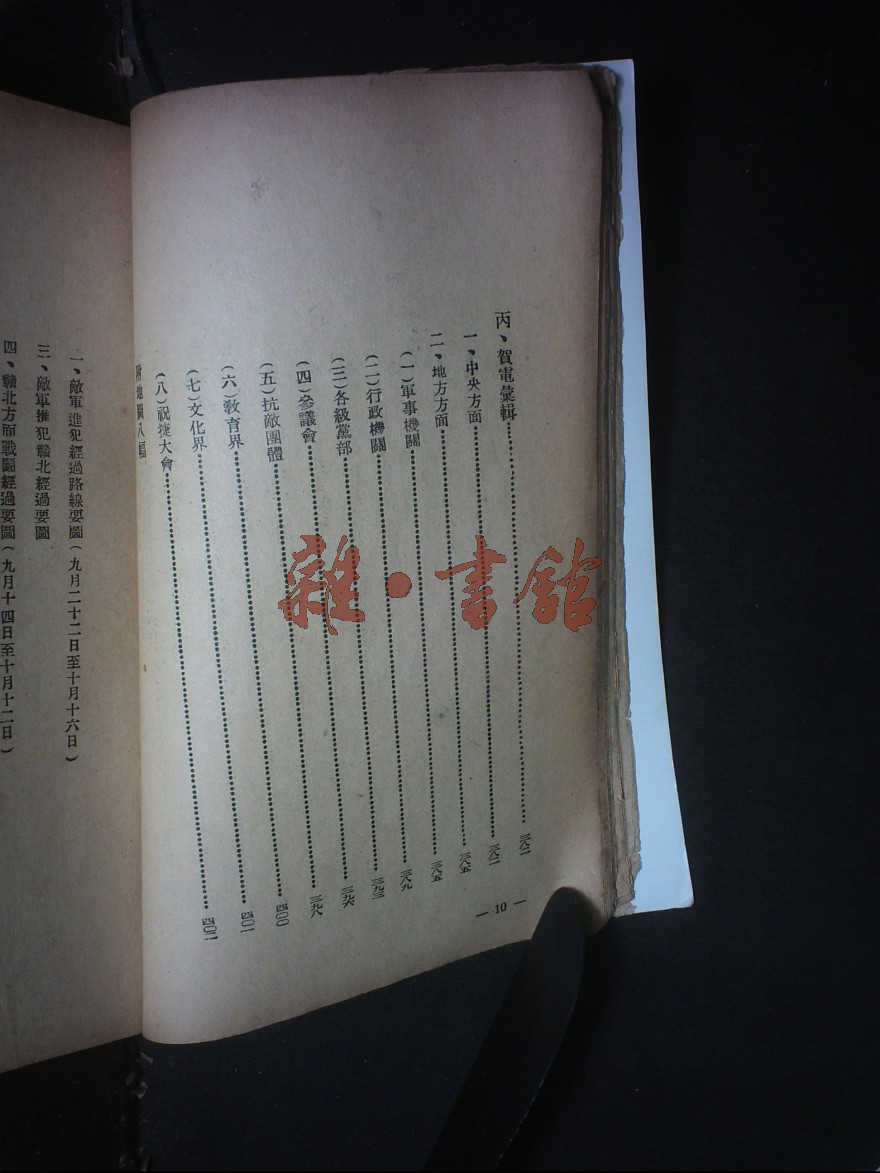 丙、賀電彙輯……三八二
一、中央方面……三八二
二、地方方面……三八五
(一)軍事機關……三八五
(二)行政機關……三八九
(三)各級黨部……三九三
(四)參議會……三九六
(五)抗敵團體……三九八
(六)敎育界……四〇〇
(七)文化界……四〇一
(八)祝捷大會……四〇二
附地圖八幅
— 10 —
一、敵軍進犯經過路線要圖(九月二十二日至十月十六日)
三、敵軍進犯贛北經過要圖
四、贛北方面戰鬪經過要圖(九月十四日至十月十二日)
雜·書館